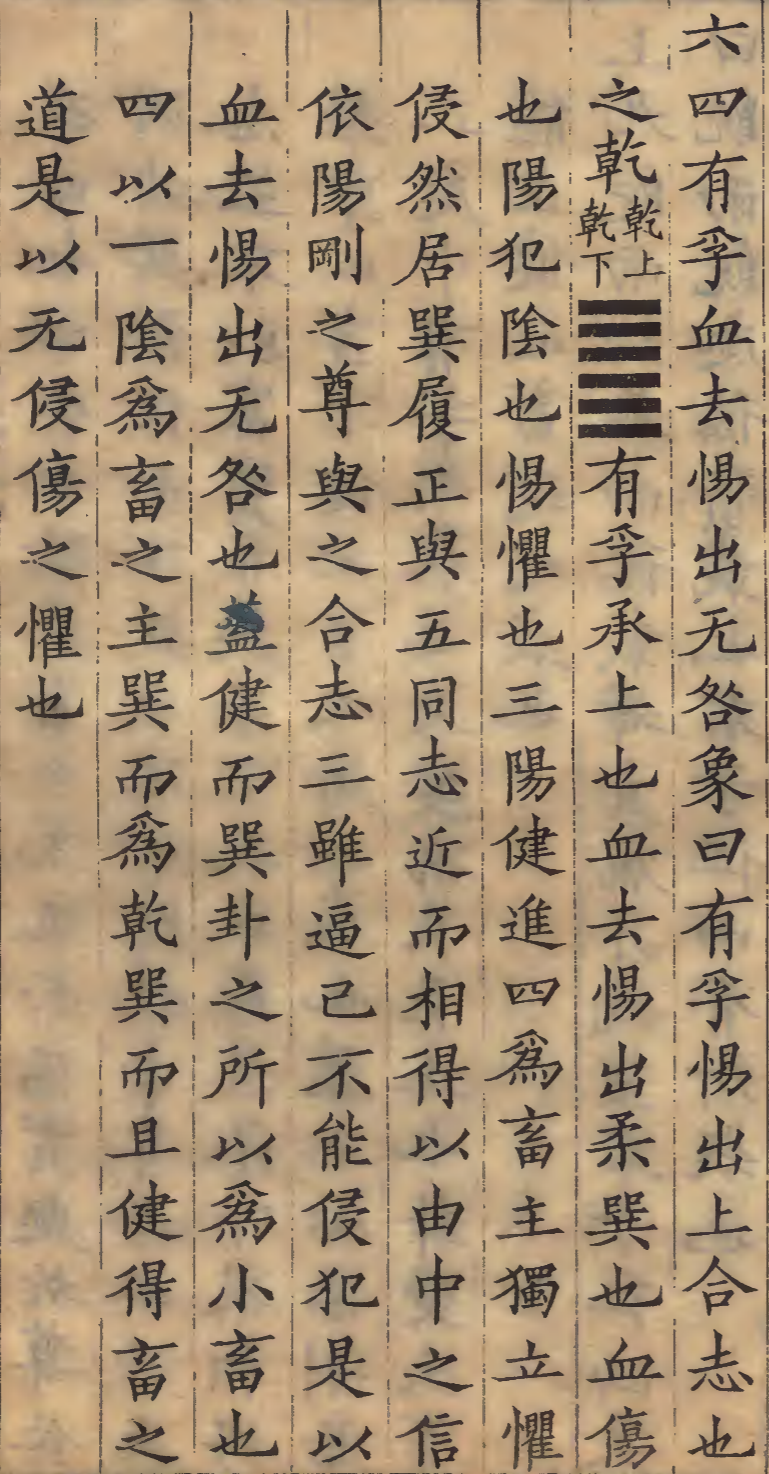 六四有孚血去惕出无咎象曰有孚惕出上合志也
之乾乾上乾下有孚承上也血去惕出柔巽也血傷
也陽犯陰也惕懼也三陽健進四爲畜主獨立懼
侵然居巽履正與五同志近而相得以由中之信
依陽剛之尊與之合志三雖逼己不能侵犯是以
血去惕出无咎也蓋健而巽卦之所以爲小畜也
四以一陰爲畜之主巽而爲乾巽而且健得畜之
道是以无侵傷之懼也